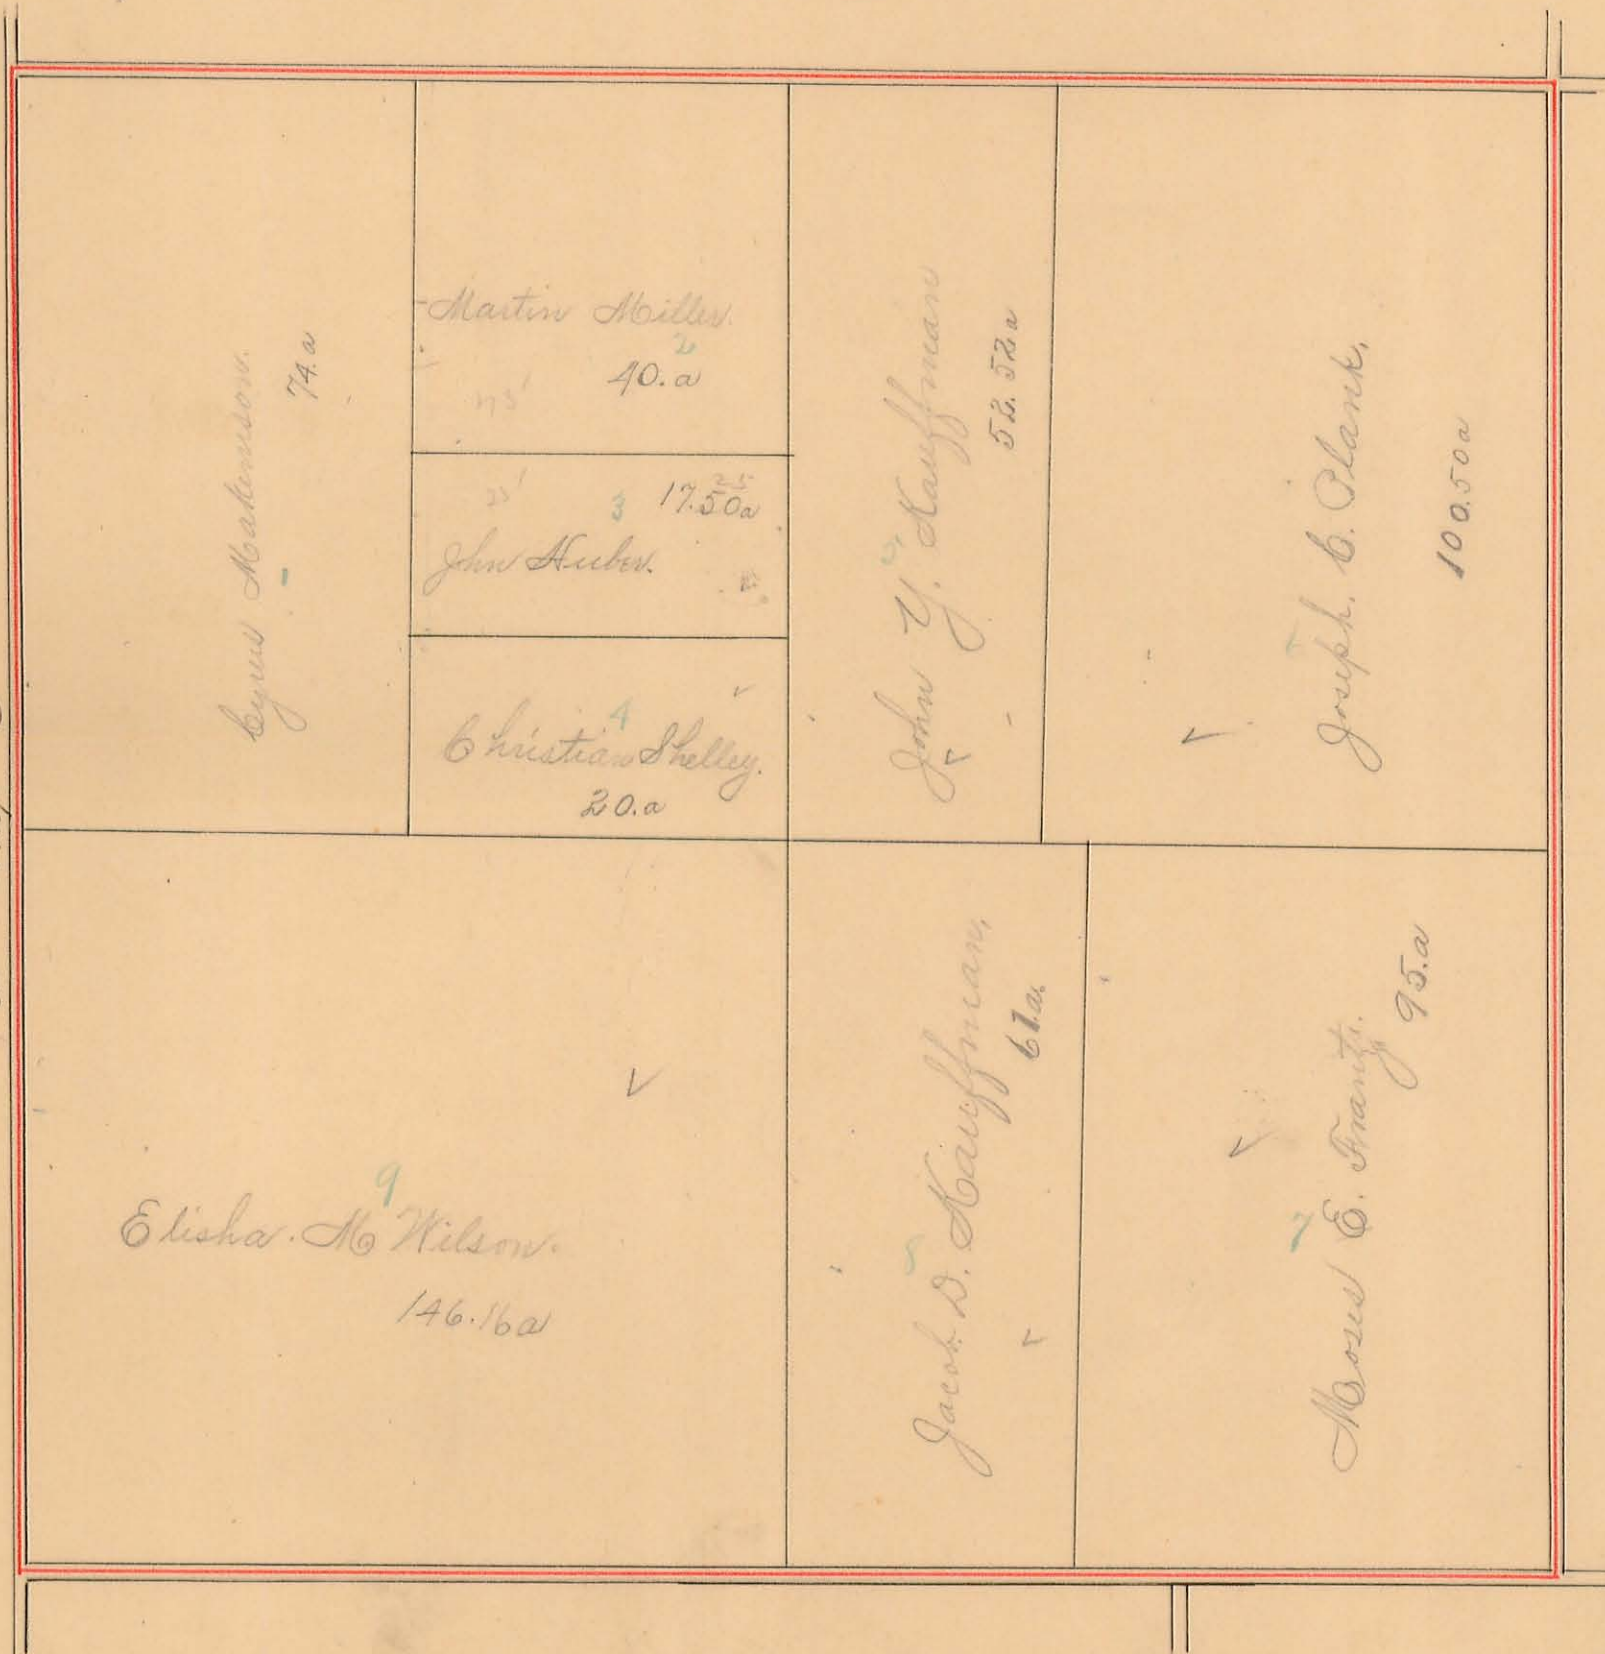 Cyrus Makinson.
74.a
Martin Miller.
2
40.a
3
17.50a
John Huber.
4
Christian Shelley.
20.a
John Y. Kauffman
52.52a
Joseph. C. Plank.
100.50a
9
Elisha. M Wilson.
146.16a
Jacob. D. Kauffman.
61.a.
7
Moses E. Frantz.
95.a